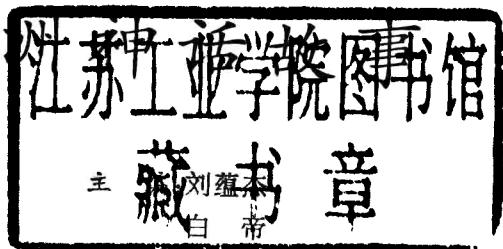 江苏工业学院图书馆
藏书章
主 刘蕴杰
白 帝